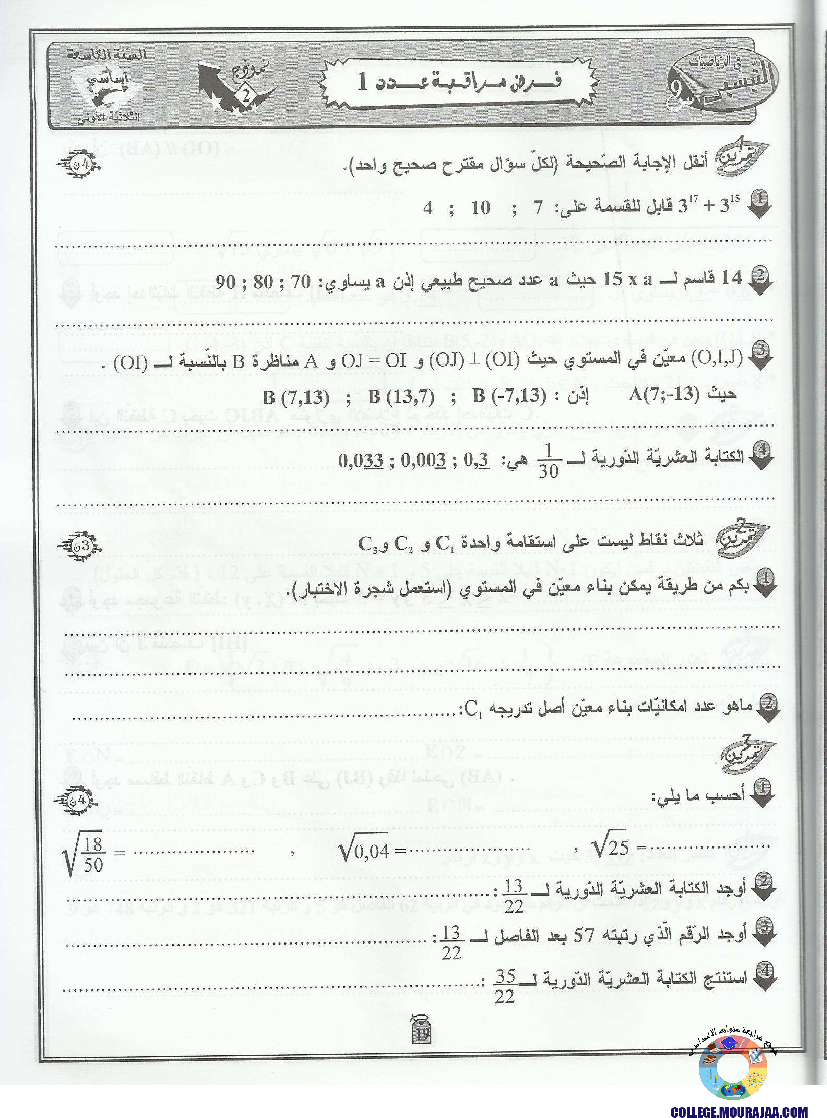 السنة التاسعة
أساسي
الثلاثية الأولى
نموذج
2
فرض مراقبة عدد 1
في الرياضيات
9
تمرين 1 أنقل الإجابة الصّحيحة (لكلّ سؤال مقترح صحيح واحد).
4ن
1 3¹⁷ + 3¹⁵ قابل للقسمة على: 7 ; 10 ; 4
2 14 قاسم لـ 15 x a حيث a عدد صحيح طبيعي إذن a يساوي: 70 ; 80 ; 90
3 (O,I,J) معيّن في المستوي حيث (OI) ⊥ (OJ) و OJ = OI و A مناظرة B بالنّسبة لـ (OI) .
حيث A(7;-13) إذن : B (-7,13) ; B (13,7) ; B (7,13)
4 الكتابة العشريّة الدّورية لـ 1/30 هي: 0,3 ; 0,003 ; 0,033
تمرين 2 ثلاث نقاط ليست على استقامة واحدة C₁ و C₂ و C₃
3ن
1 بكم من طريقة يمكن بناء معيّن في المستوي (استعمل شجرة الاختبار).
2 ماهو عدد امكانيّات بناء معيّن أصل تدريجه C₁:
تمرين 3
4ن
1 أحسب ما يلي:
√25 = , √0,04 = , √(18/50) =
2 أوجد الكتابة العشريّة الدّورية لـ 13/22 :
3 أوجد الرّقم الّذي رتبته 57 بعد الفاصل لـ 13/22 :
4 استنتج الكتابة العشريّة الدّورية لـ 35/22 :
19
COLLEGE.MOURAJAA.COM